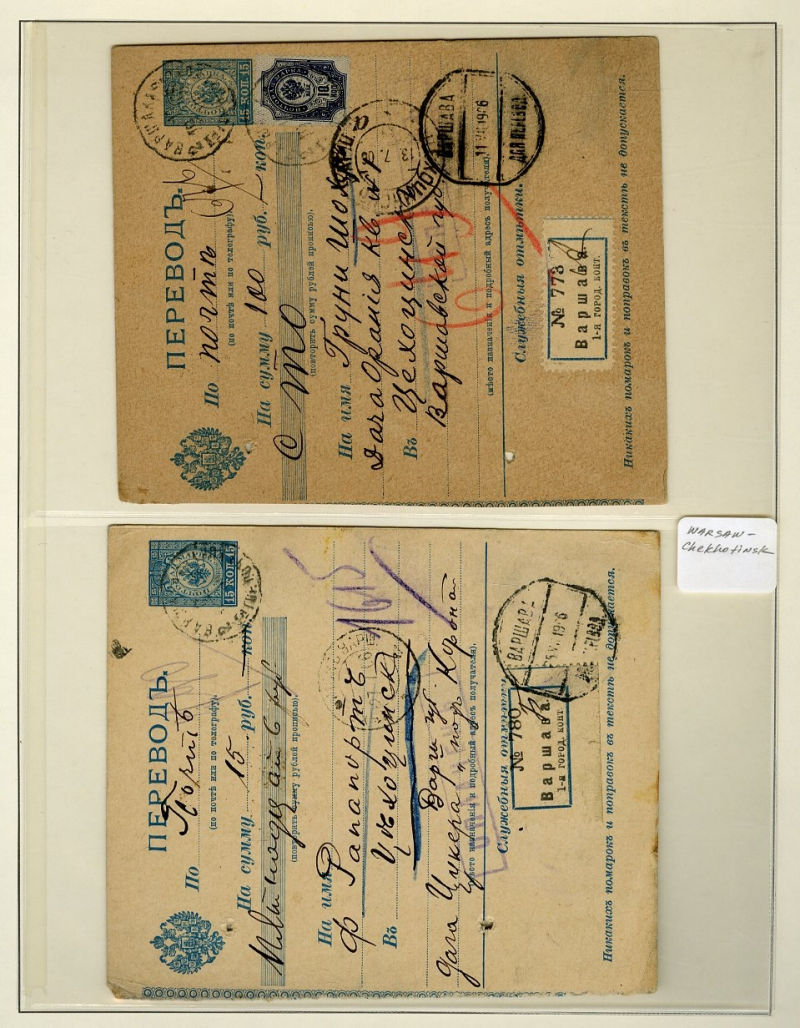 15 КОП. 15
ПЕРЕВОДЪ.
По почтѣ
(по почтѣ или по телеграфу).
На сумму 100 руб. — коп.
Сто
(повторить сумму рублей прописью).
На имя Груни Шох
Дача Оранія кв
Въ Цехоцинск
Варшавской гу
(мѣсто назначенія и подробный адресъ получателя).
Служебныя отмѣтки.
Никакихъ помарокъ и поправокъ въ текстѣ не допускается.
ВАРШАВА
11 VII 1906
ДЛЯ ПЕРЕВОД
13.7.
№ 773
Варшава.
1-я ГОРОД. КОНТ.
WARSAW-
Chekhotinsk
15 КОП. 15
ПЕРЕВОДЪ.
По Почтѣ
(по почтѣ или по телеграфу).
На сумму 15 руб. — коп.
(повторить сумму рублей прописью).
На имя
Ф Рапапортъ
Въ Цѣхоцинскъ
Варш гу
(мѣсто назначенія и подробный адресъ получателя).
дача Цукера
Служебныя отмѣтки.
Никакихъ помарокъ и поправокъ въ текстѣ не допускается.
1615
ВАРШАВА
1906
№ 780
Варшава.
1-я ГОРОД. КОНТ